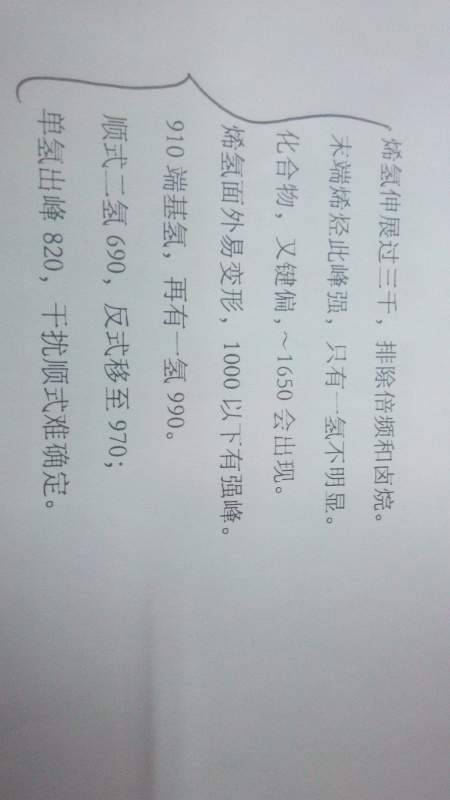 烯氢伸展过三千，排除倍频和卤烷。
末端烯烃此峰强，只有一氢不明显。
化合物，又键偏，～1650会出现。
烯氢面外易变形，1000以下有强峰。
910端基氢，再有一氢990。
顺式二氢690，反式移至970；
单氢出峰820，干扰顺式难确定。